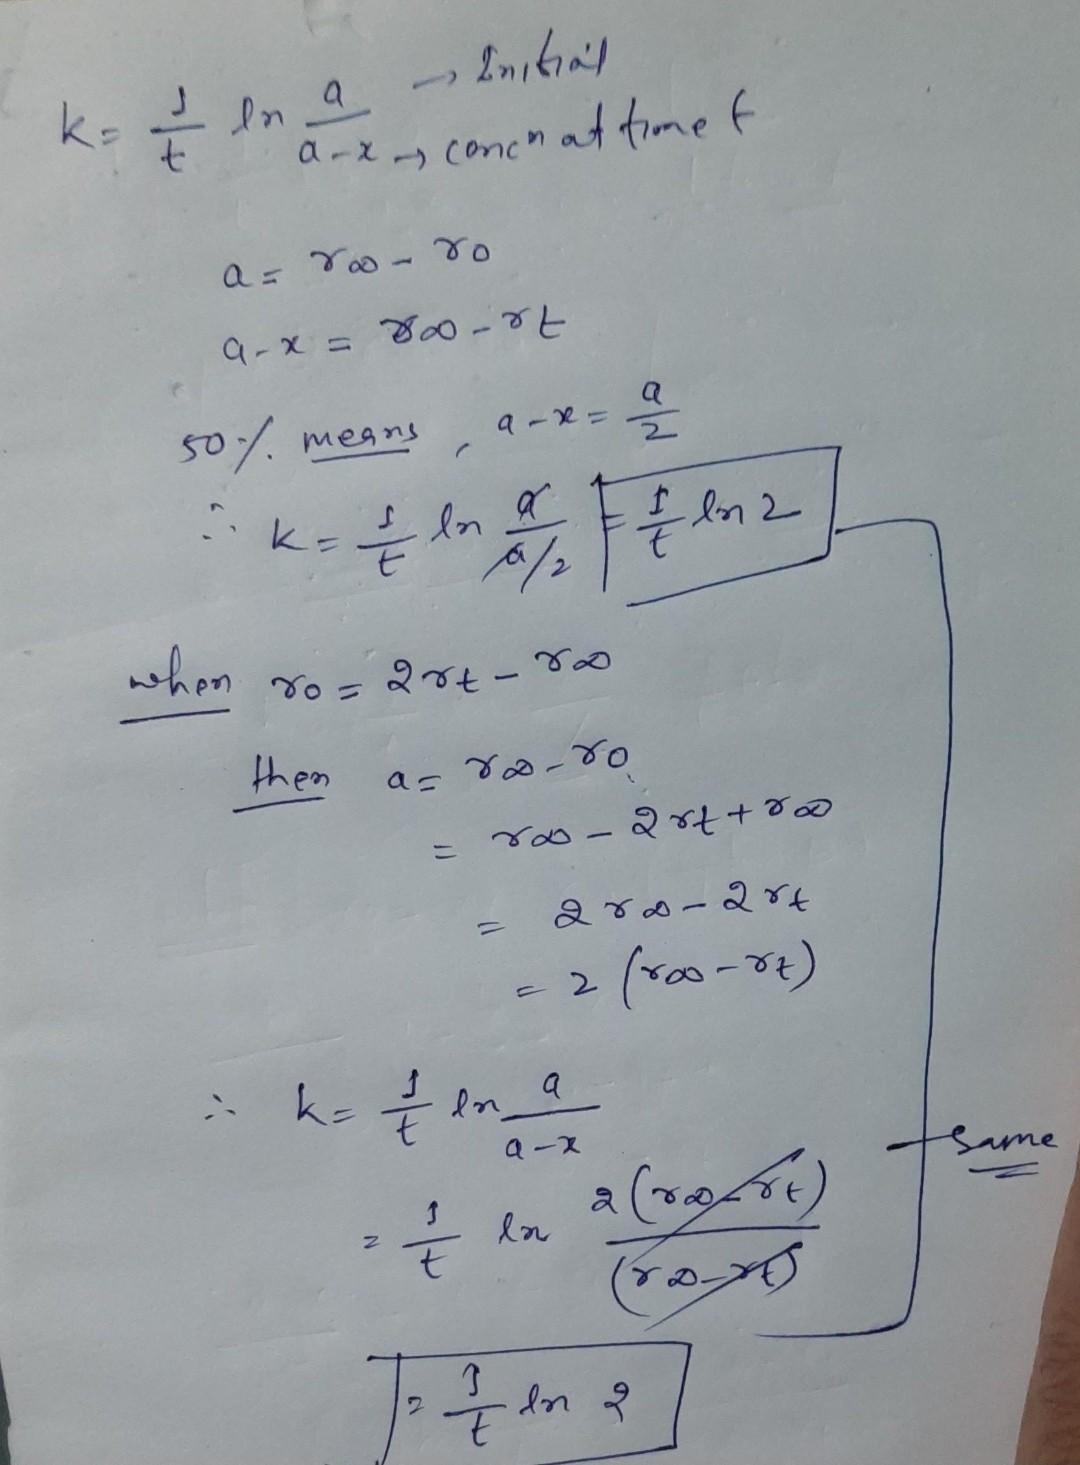 k = 1/t ln a/(a-x) → Initial
→ concn at time t
a = r∞ - r0
a-x = r∞ - rt
50% means, a-x = a/2
∴ k = 1/t ln a/(a/2) = 1/t ln 2
when r0 = 2rt - r∞
then a = r∞ - r0
= r∞ - 2rt + r∞
= 2r∞ - 2rt
= 2(r∞ - rt)
∴ k = 1/t ln a/(a-x)
Same
= 1/t ln 2(r∞ - rt)/(r∞ - rt)
= 1/t ln 2